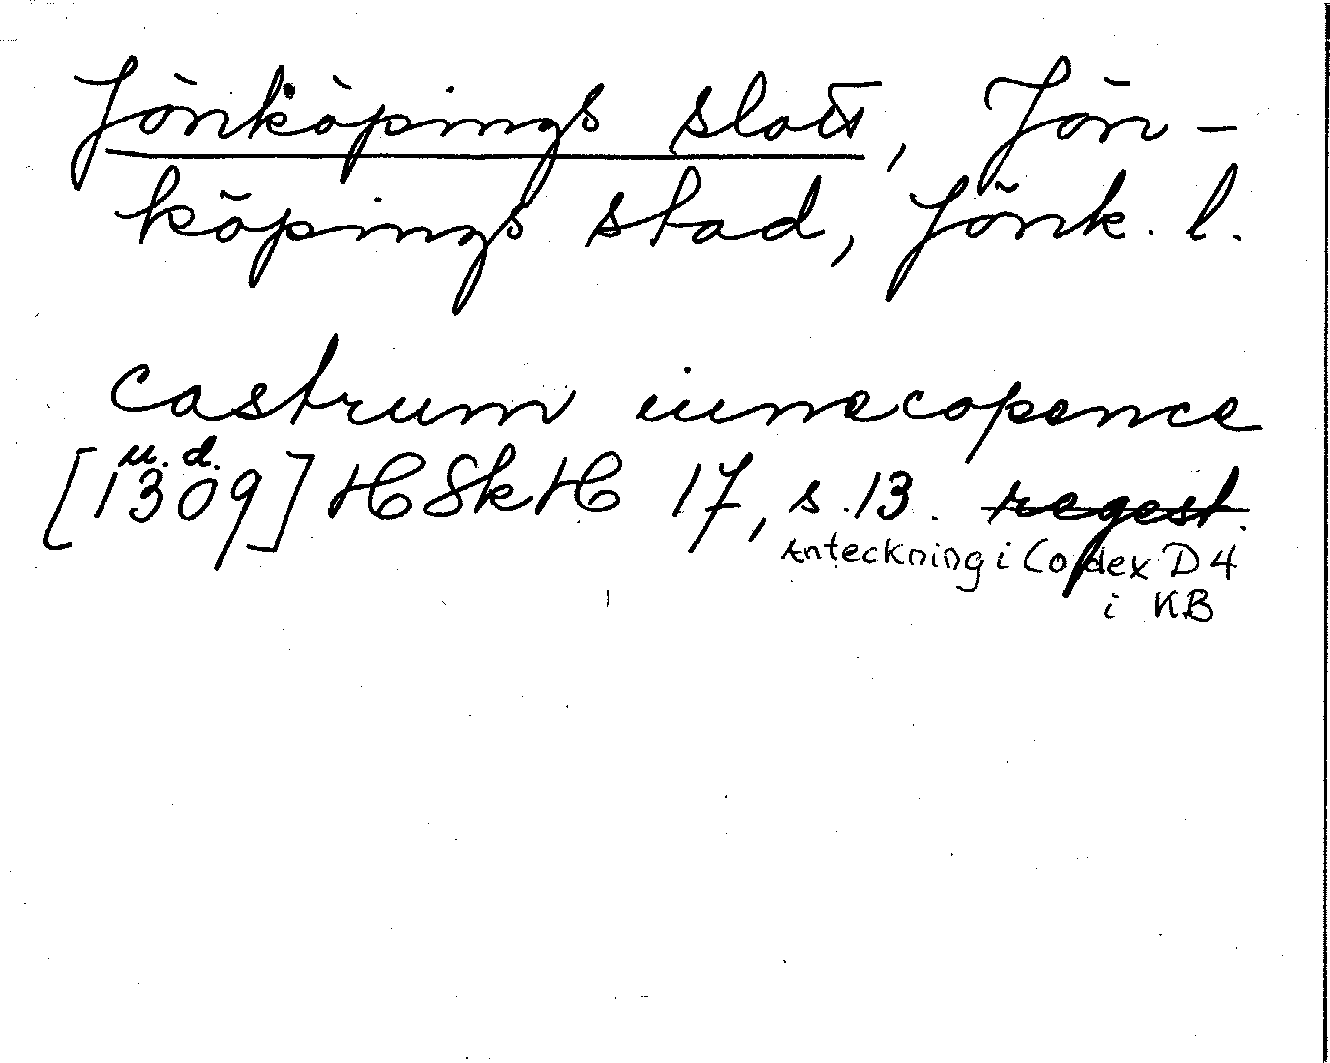 Jönköpings slott, Jön-
köpings stad, Jönk. l.
castrum iunacopence
[1309] u.d. HSkH 17, s. 13. regest.
Anteckning i Codex D4
i KB